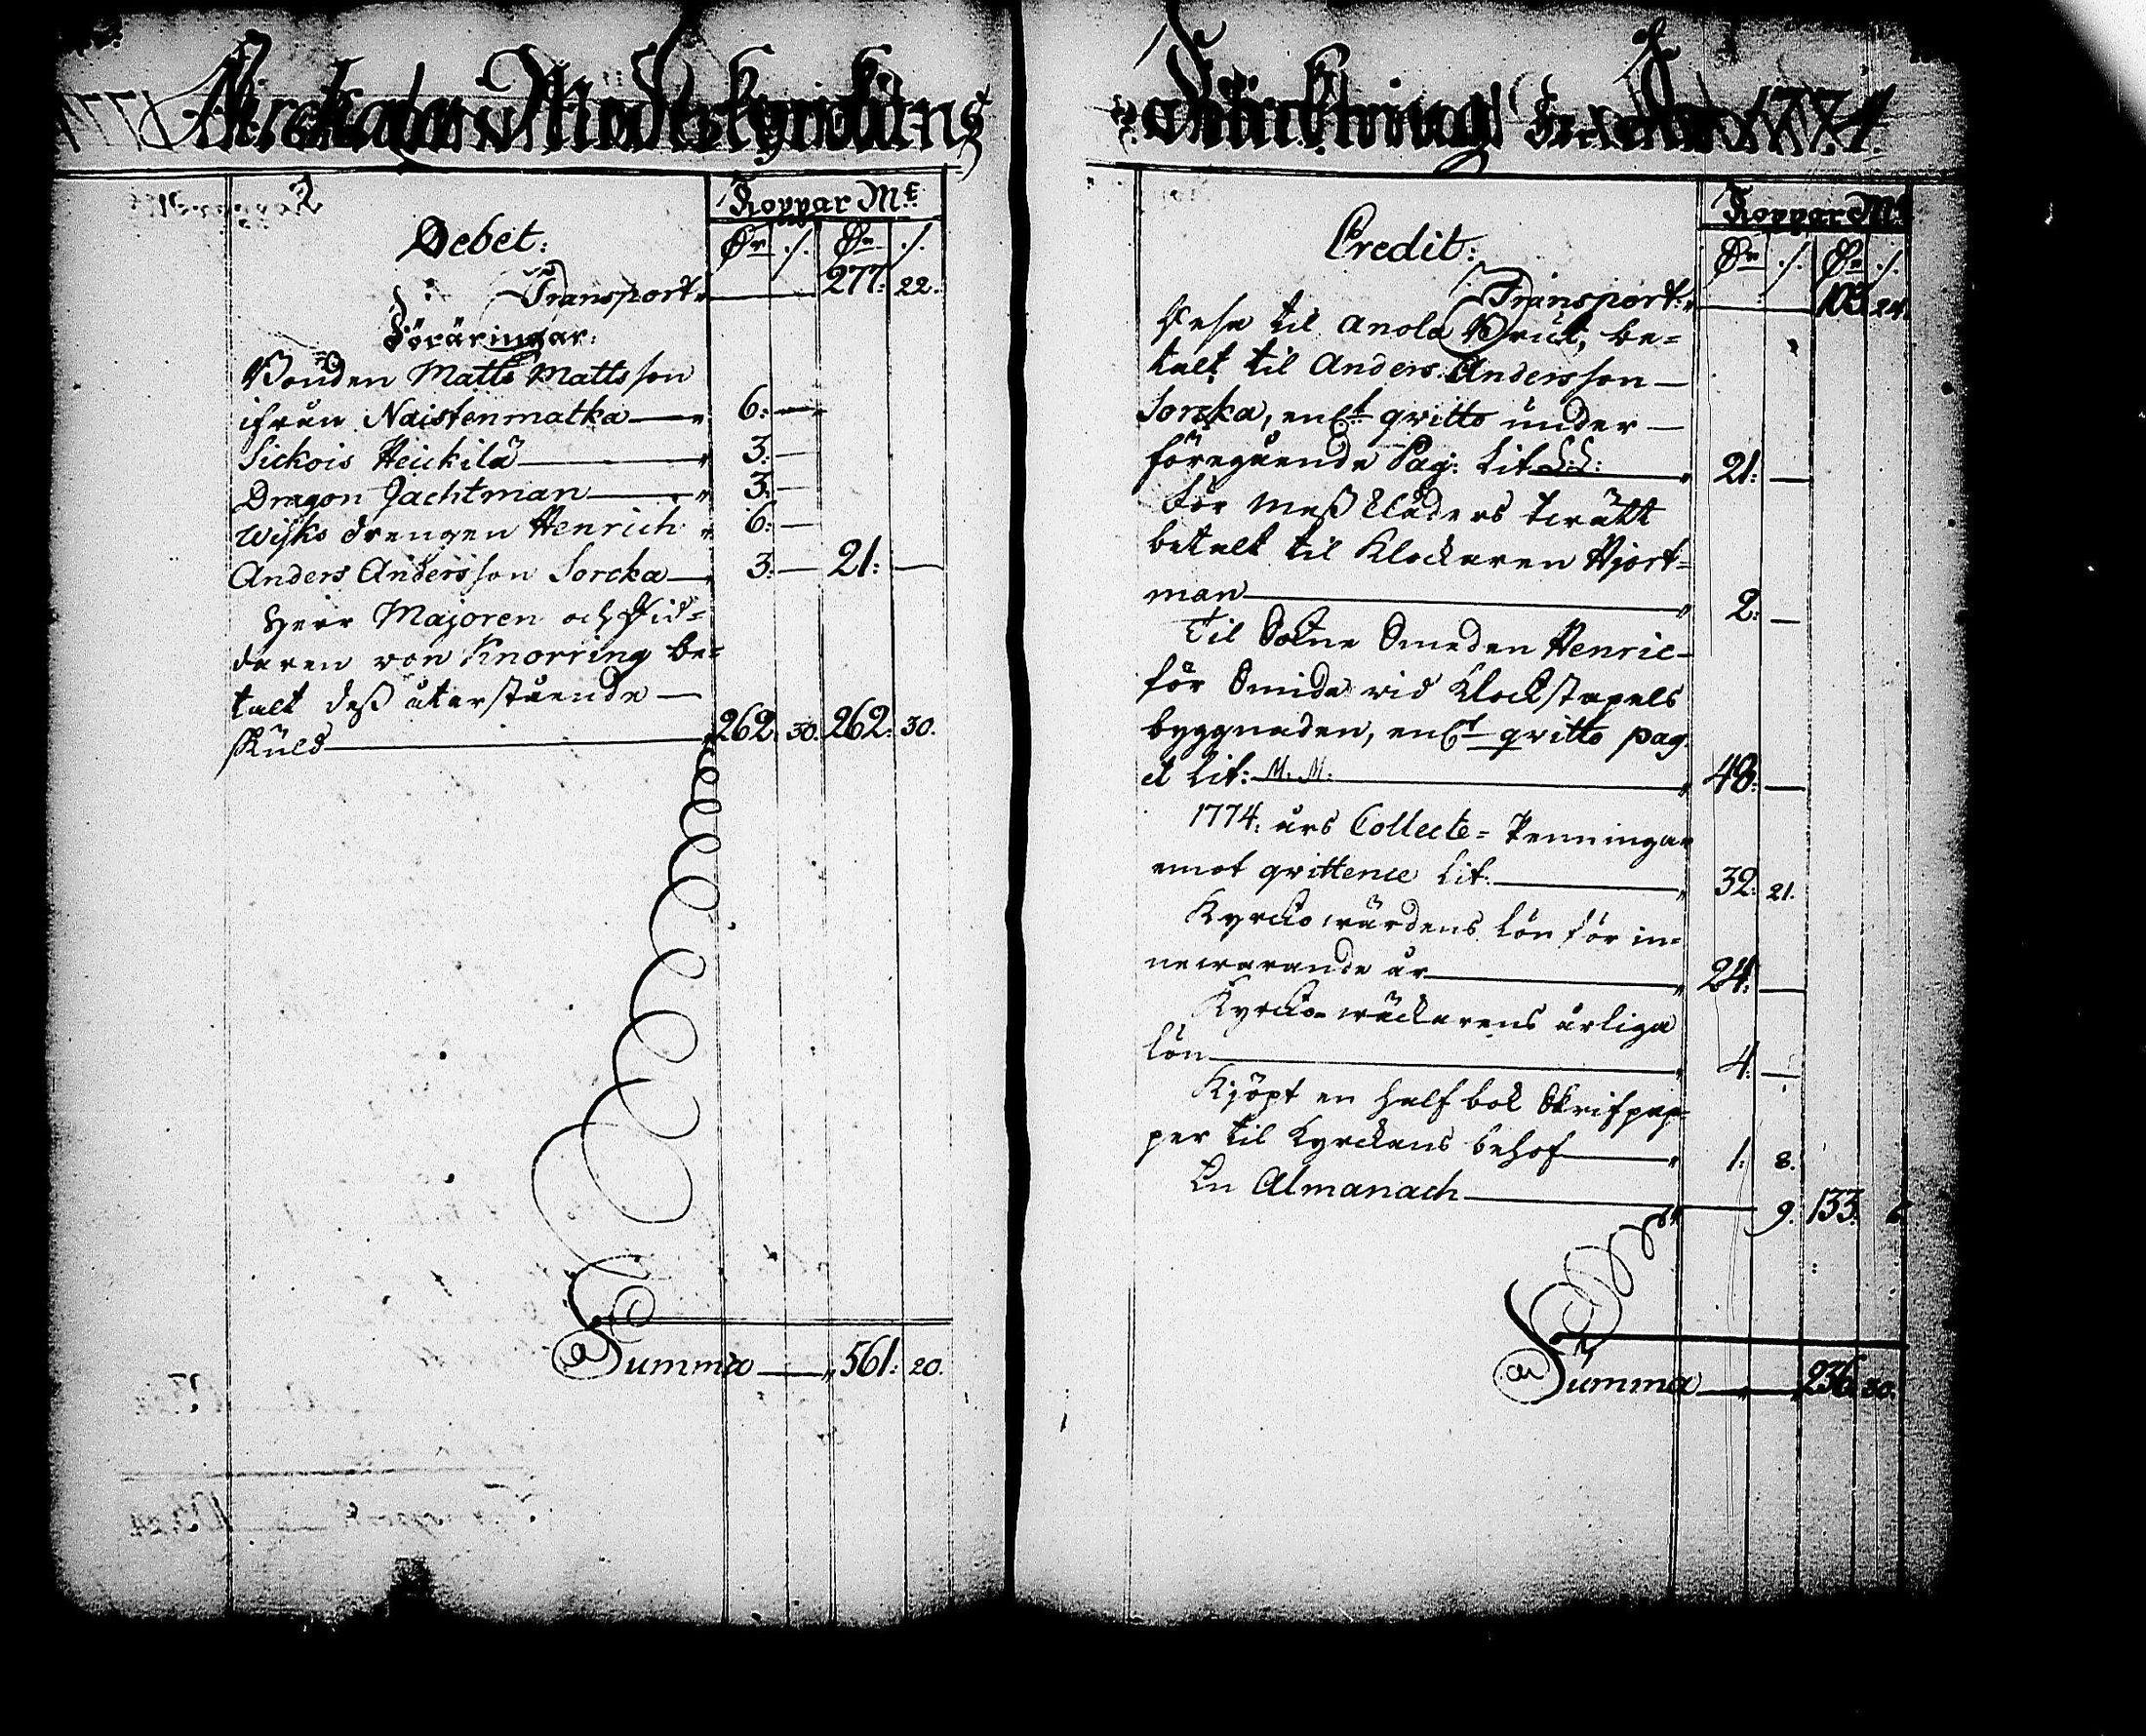 Debet:
Koppar Mt.
Dr ./. Dr ./.
Transport 277: 22.
Föräringar:
Bonden Matts Mattsson
ifrån Naistenmatka 6: —
Sickois Heickilä 3: —
Dragon Jachtman 3: —
Wijks drengen Henrich 6: —
Anders Andersson Sorcka 3: — 21: —
Herr Majoren och Rid-
daren von Knorring be-
talt deß återstående
skuld 262: 30. 262: 30.
Summa 561: 20.
Credit:
Koppar Mt.
Dr ./. Dr ./.
Transport 103 24.
til Anola be-
talt til Anders Andersson
Sorcka, enl.t qvitto under
föregående Pag: Lit L:L: 21: —
För Meß kläders twätt
betalt til Klockaren Hjort-
man 2: —
Til Sokne Smeden Henric
för Smide vid Klockstapels
byggnaden, enl.t qvitto pag.
et Lit: M. M. 48: —
1774: års Collecte-Penningar
emot qvittence Lit: 32: 21.
Kyrcko wärdens lön för in-
newarande år 24: —
Kyrcko-wäckarens årliga
lön 4: —
Kjöpt en half bok Skrifpap-
per til Kyrckans behof 1: 8.
En Almanach 9. 133: 6.
Summa 236: 30.